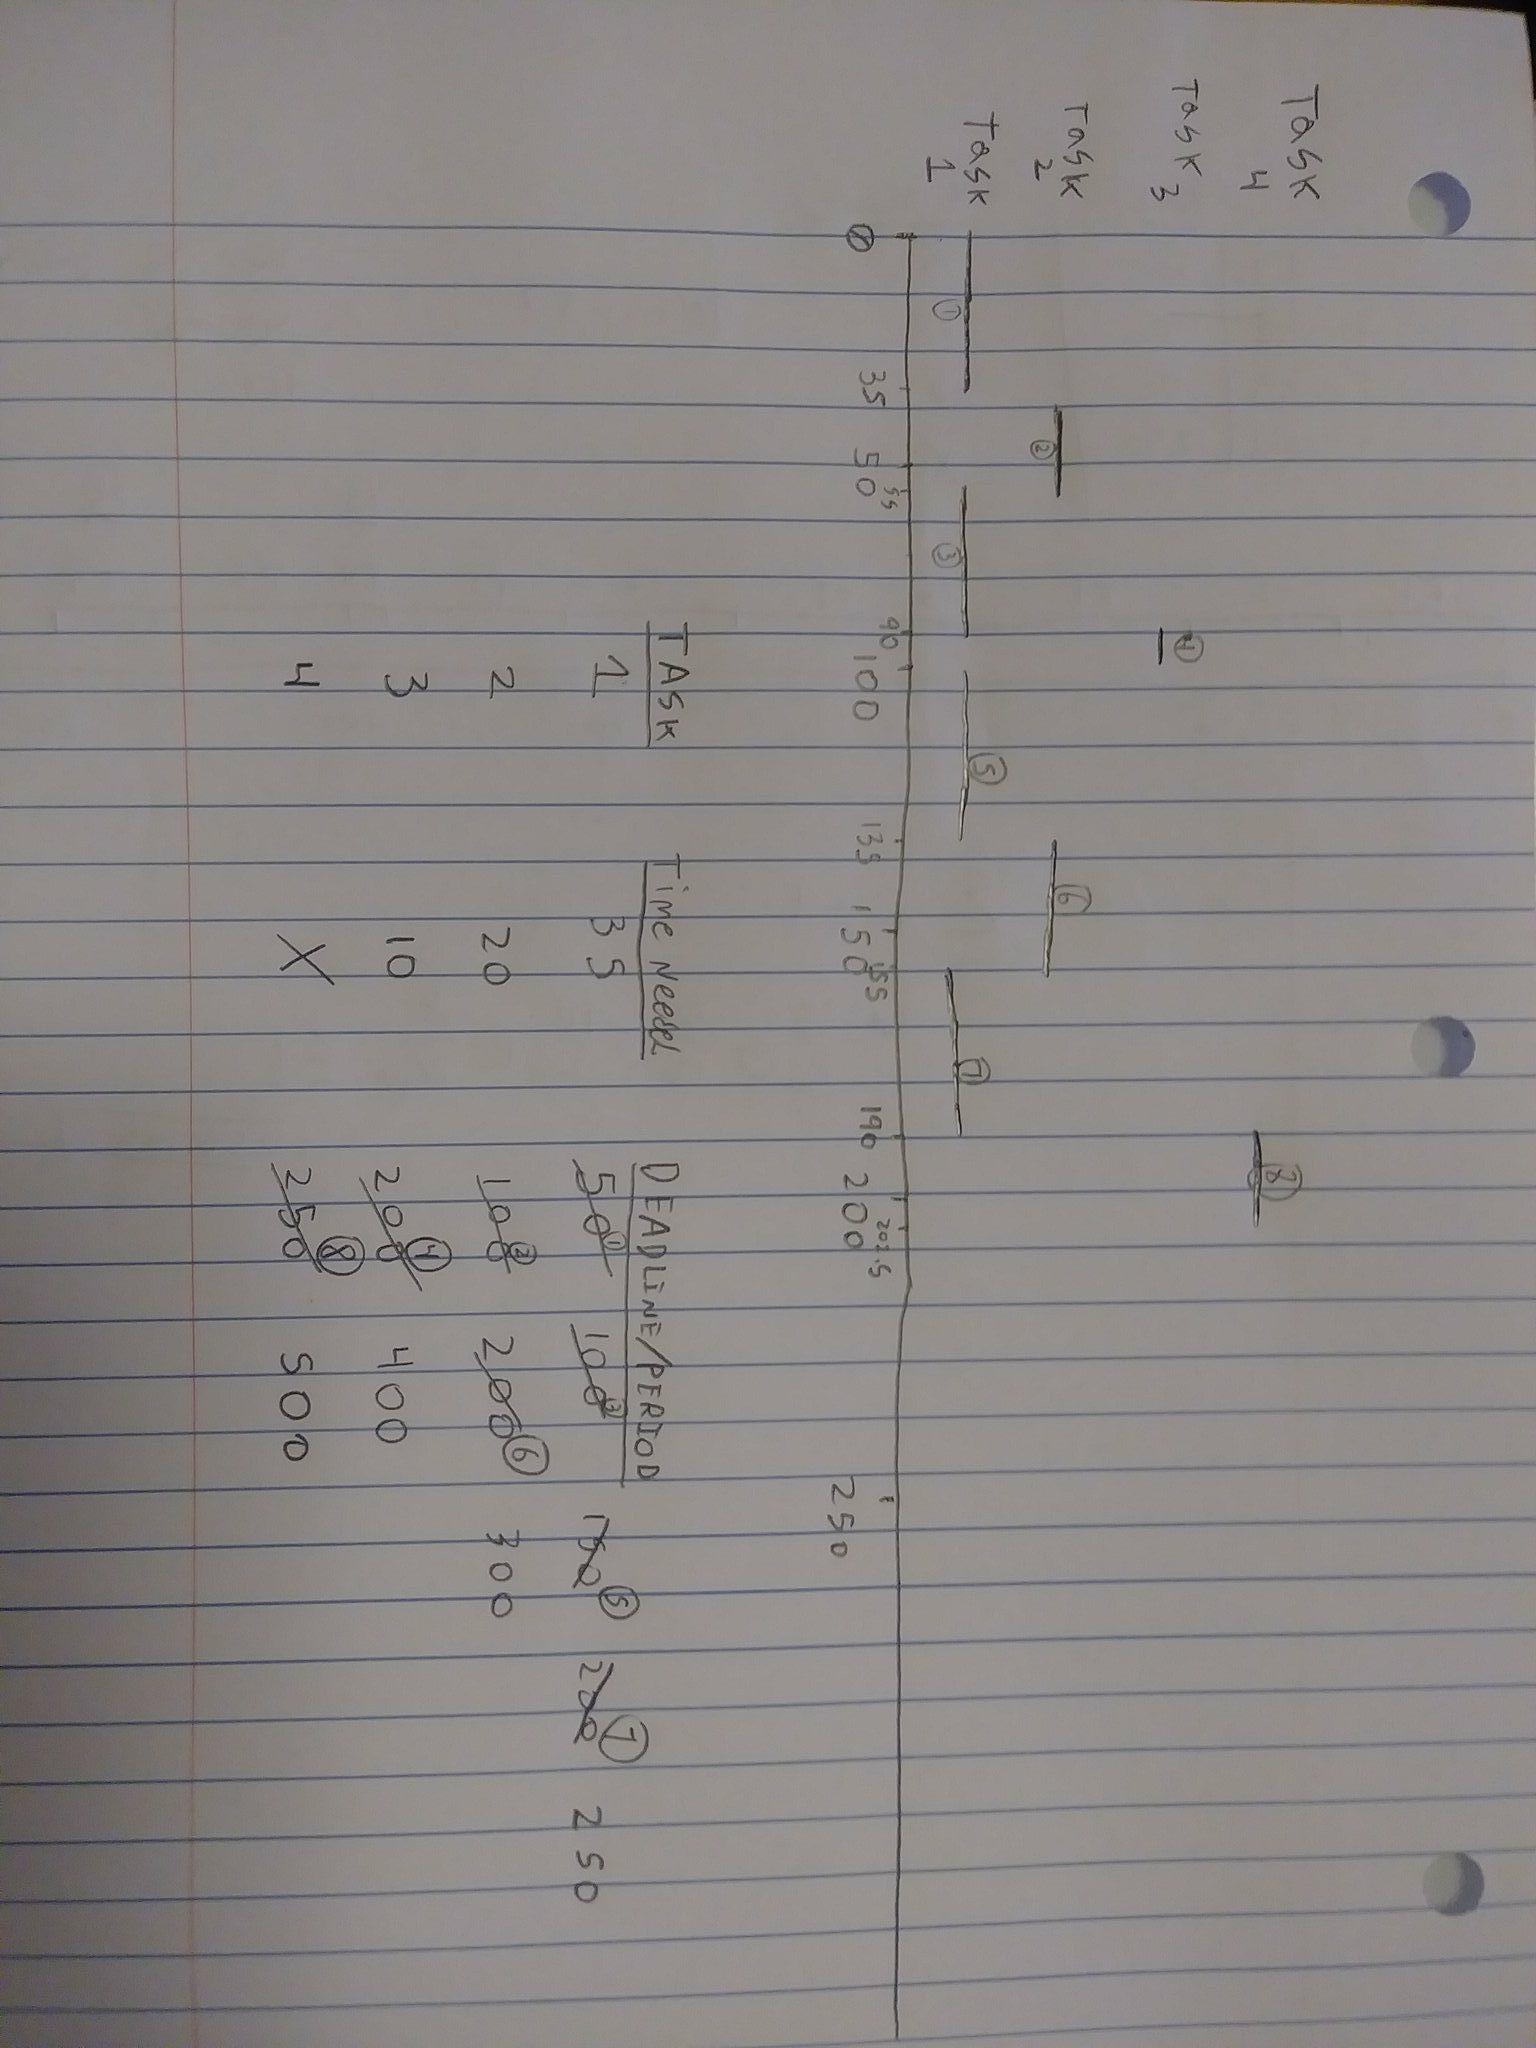 Task 4
⑧
Task 3
④
Task 2
② ⑥
Task 1
① ③ ⑤ ⑦
0 35 50 55 90 100 135 150 155 190 200 202.5 250
TASK Time Needed DEADLINE/PERIOD
1 35 50 ① 100 ③ 150 ⑤ 200 ⑦ 250
2 20 100 ② 200 ⑥ 300
3 10 200 ④ 400
4 X 250 ⑧ 500